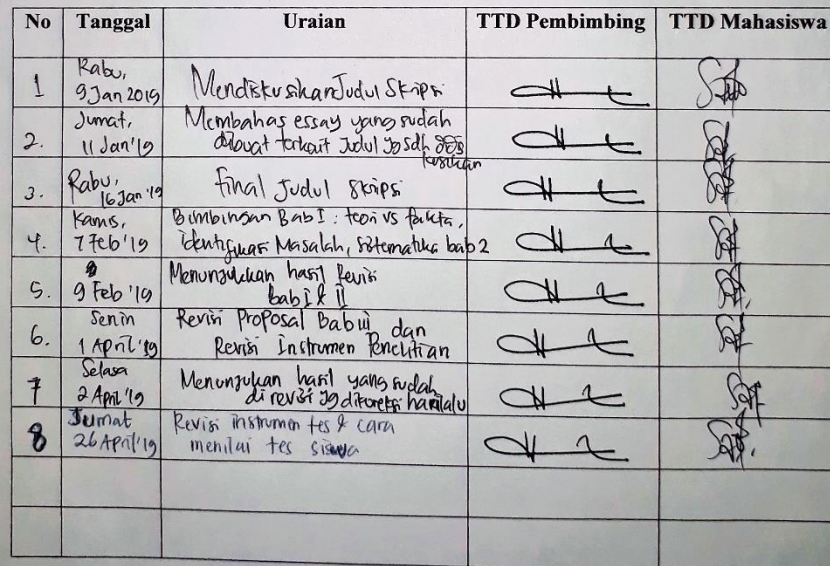 No Tanggal Uraian TTD Pembimbing TTD Mahasiswa
1 Rabu, 9 Jan 2019 Mendiskusikan Judul Skripsi
2. Jumat, 11 Jan'19 Membahas essay yang sudah
dibuat terkait Judul yg sdh
3. Rabu, 16 Jan'19 final Judul skripsi
4. Kamis, 7 Feb'19 Bimbingan Bab I : teori vs fakta,
identifikasi Masalah, sistematika bab 2
5. 9 Feb '19 Menunjukkan hasil Revisi
bab I & II
6. Senin 1 April '19 Revisi Proposal Bab iii dan
Revisi Instrumen Penelitian
7 Selasa 2 April '19 Menunjukan hasil yang sudah
di revisi yg dikoreksi hari lalu
8 Jumat 26 April '19 Revisi instrumen tes & cara
menilai tes siswa